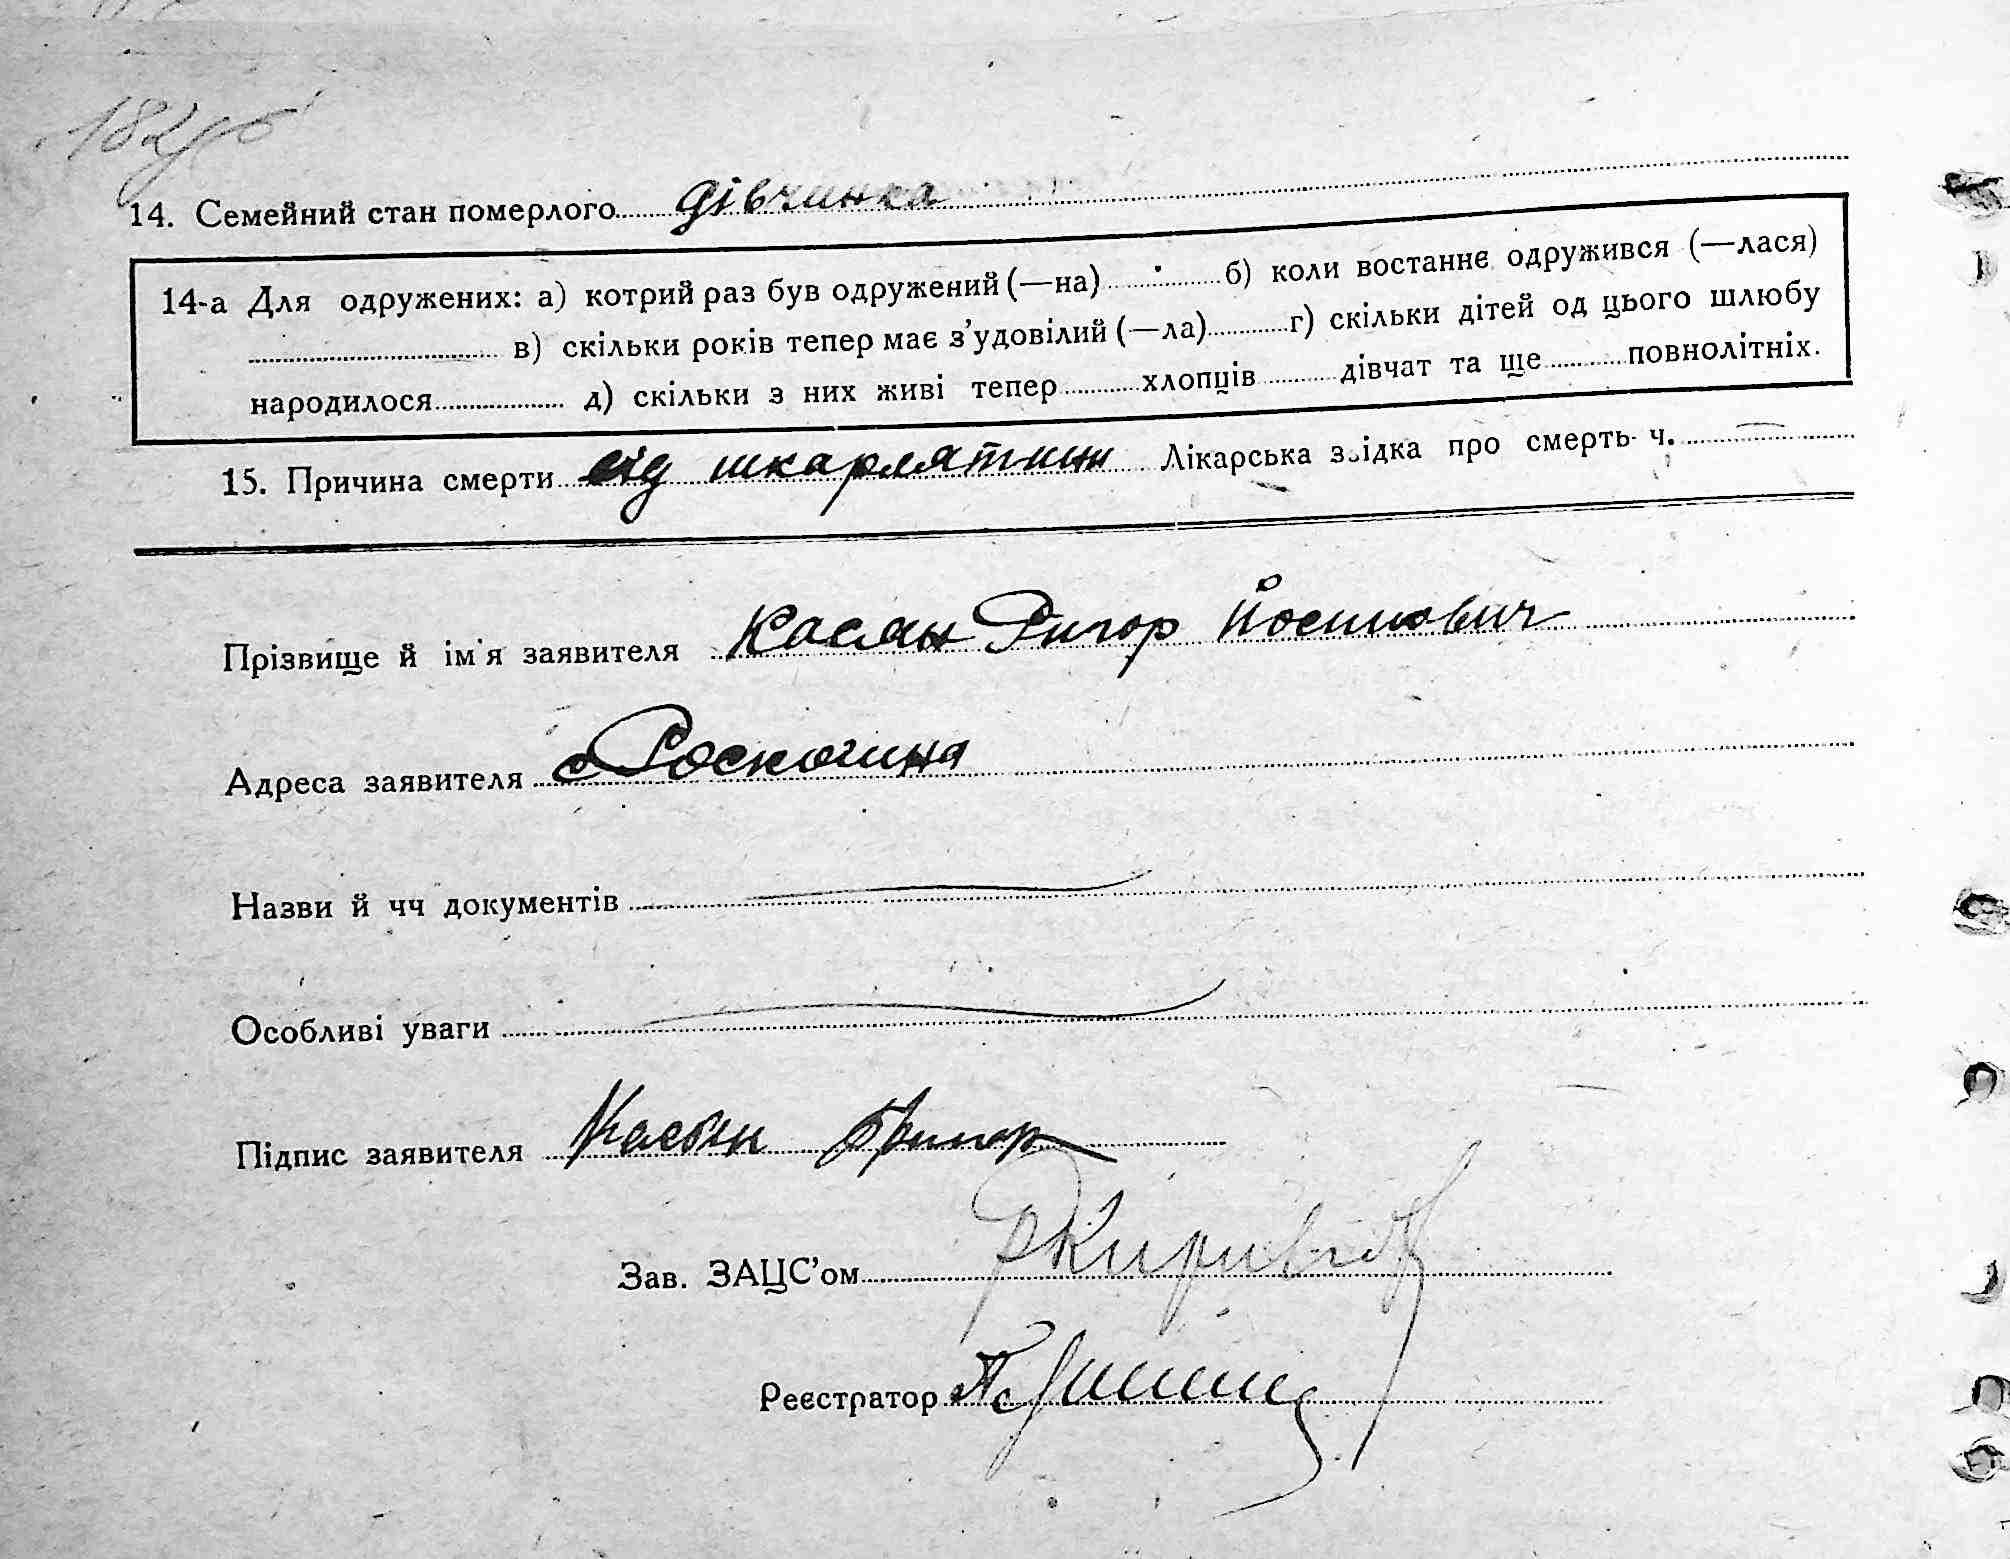 182
14. Семейний стан померлого дівчинка
14-а Для одружених: а) котрий раз був одружений (—на) б) коли востаннє одружився (—лася)
в) скільки років тепер має з’удовілий (—ла) г) скільки дітей од цього шлюбу
народилося д) скільки з них живі тепер хлопців дівчат та ще повнолітніх.
15. Причина смерти від шкарлятини Лікарська звідка про смерть ч. —
Прізвище й ім'я заявителя Касян Ригор Йосипович
Адреса заявителя с Роскошна
Назви й чч документів —
Особливі уваги —
Підпис заявителя Касян Григор
Зав. ЗАЦС’ом
Реєстратор